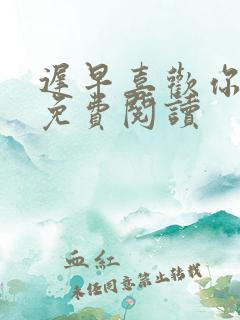 遲早喜歡你
免費閱讀
血紅
未經同意禁止轉載